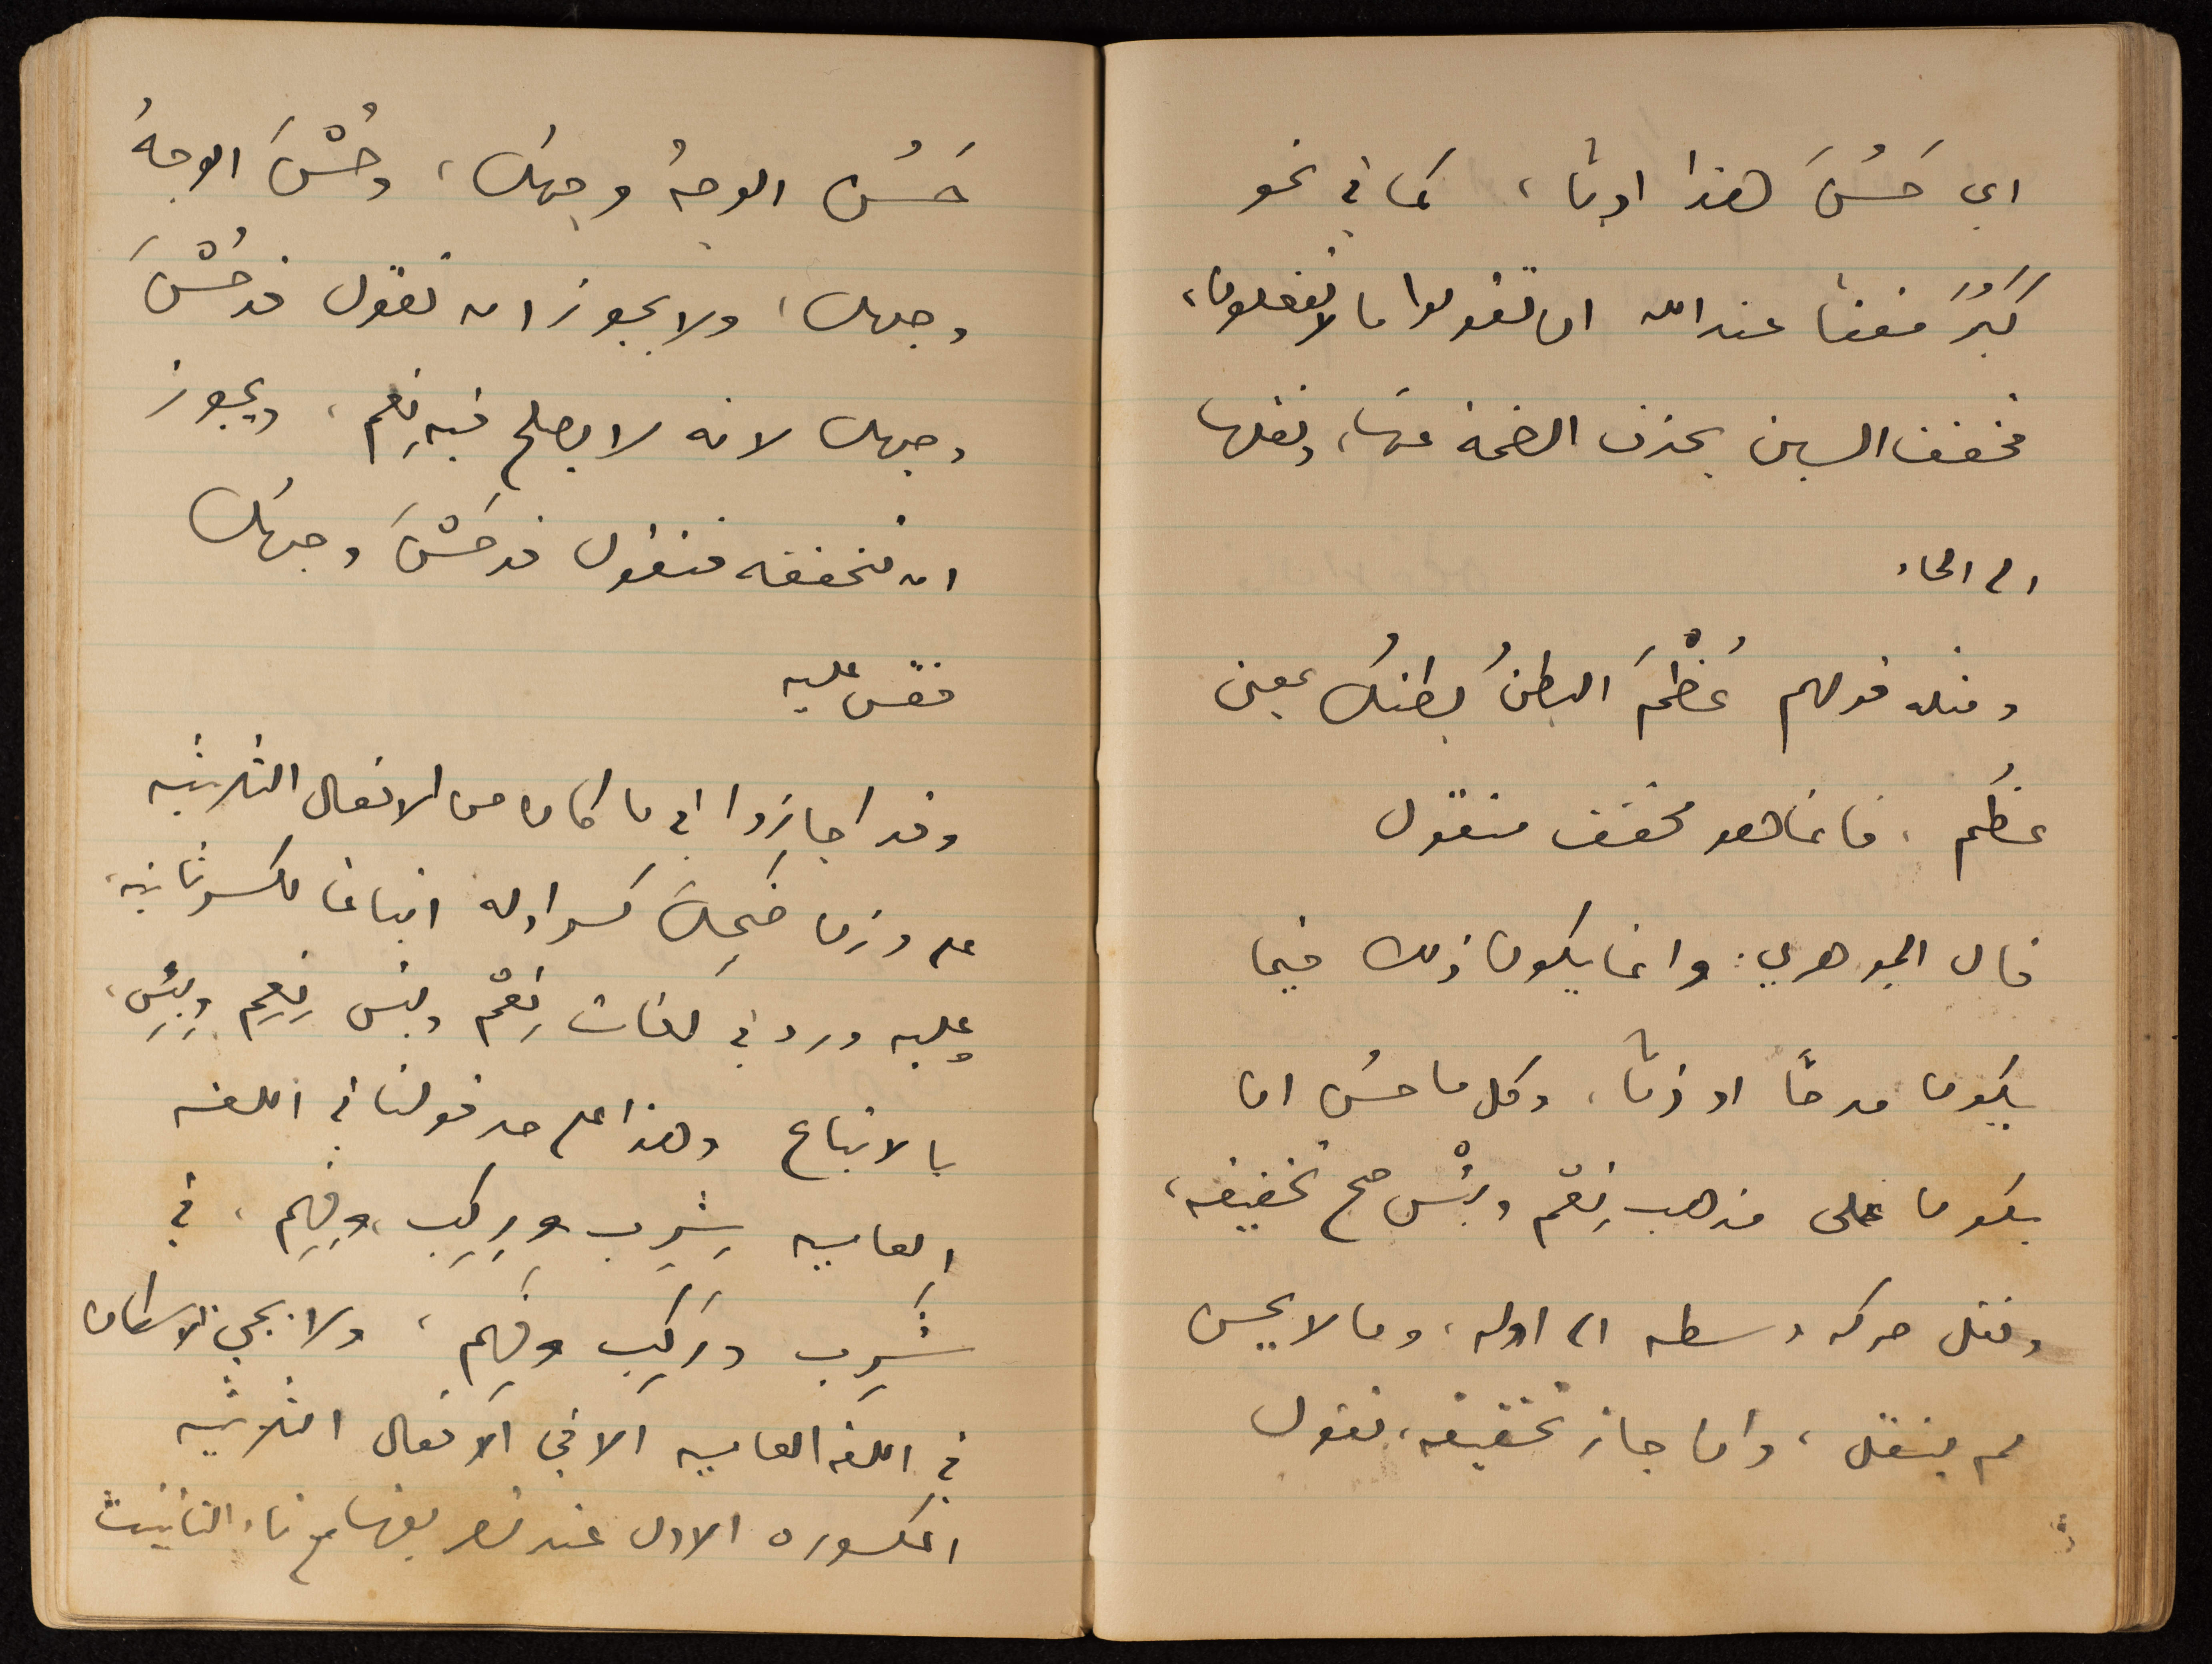 اي حَسُنَ هذا ادبًا، كما في نحو
كَبُرَ مقتًا عند الله ان تقولوا ما لا تفعلون،
فخفف السين بحذف الضمة عنها، ونقلها
الى الحاء
ومثله قولهم عُظْمَ البطنُ بطنك بمعنى
عظُم، فانما هو مخفف منقول
قال الجوهري: وانما يكون ذلك فيما
يكون مدحًا او ذمًا، وكل ما حسُن ان
يكون على مذهب نِعْم وبِئْس صح تخفيفه،
ونقل حركة وسطه الى اوله، وما لا يحسن
لم ينقل، وان جاز تخفيفه، تقول
حَسُن الوجهُ وجهك، وحُسْنَ الوجهُ
وجهك، ولا يجوز ان تقول قد حُسْنَ
وجهك لانه لا يصلح فيه نِعْم، ويجوز
ان تخففه فتقول قد حَسْنَ وجهُك
فقس عليه
وقد اجازوا في ما كان من الافعال الثلاثيه
على وزن ضَحِكَ كسر اوله اتباعا لكسر ثانيه،
وعليه ورد في لغات نِعْم وبئس نِعِم وبِئِس،
بالاتباع وهذا على حد قولنا في اللغة
العاميه شِرِب ورِكِب، وفِهِم، في
شَرِب ورَكِب وفَهِم، ولا يجي الاسكان
في اللغه العاميه الا في الافعال الثلاثيه
المكسوره الاول عند تصريفها مع تاء التانيث